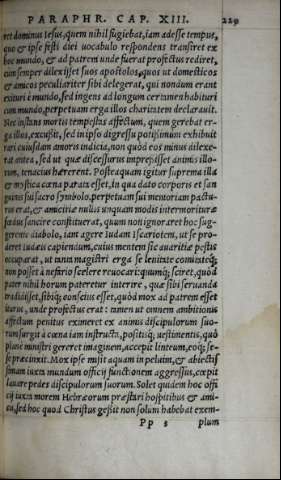 PARAPHR. CAP. XIII. 229
ret dominus Iesus, quem nihil fugiebat, iam adesse tempus,
quo & ipse festi diei vocabulo respondens transiret ex
hoc mundo, & ad patrem unde fuerat profectus rediret,
cum semper dilexisset suos apostolos, quos ut domesticos
& amicos peculiariter sibi delegerat, qui nondum erant
exituri è mundo, sed ingens ad longum certamen habituri
cum mundo, perpetuam erga illos charitatem declarauit.
Nec instans mortis tempestas affectum, quem gerebat er-
ga illos, excussit, sed in ipso digressu potissimum exhibuit
rari cuiusdam amoris indicia, non quòd eos minus dilexe-
rat antea, sed ut quæ discessurus impressisset animis illo-
rum, tenacius hærerent. Posteaquam igitur suprema illa
& mystica cœna parata esset, in qua dato corporis et san
guinis sui sacro symbolo, perpetuam sui memoriam pactu-
rus erat, & amicitiæ nullis unquam modis intermorituræ
fœdus sancire constituerat, quum non ignoraret hoc sug-
gerente diabolo, iam agere Iudam Iscariotem, ut se pro-
deret Iudæis capiendum, cuius mentem sic auaritiæ pestis
occuparat, ut tanta magistri erga se lenitate
non posset à nefario scelere reuocari: quumq; sciret, quòd
pater nihil horum pateretur interire, quæ sibi seruanda
tradidisset, sibiq; conscius esset, quòd mox ad patrem esset
iturus, unde profectus erat: tamen ut omnem ambitionis
affectum penitus eximeret ex animis discipulorum suo-
rum surgit à cœna iam instructa, positisq; uestimentis, quò
planè ministri gereret imaginem, accepit linteum, eoq; se-
se præcinxit. Mox ipse misit aquam in peluim, & abiectis
simum iuxta mundum officij functionem aggressus, cœpit
lauare pedes discipulorum suorum. Solet quidem hoc offi
cij iuxta morem Hebræorum præstari hospitibus & ami-
cis, sed hoc quod Christus gessit non solum habebat exem-
Pp 5 plum